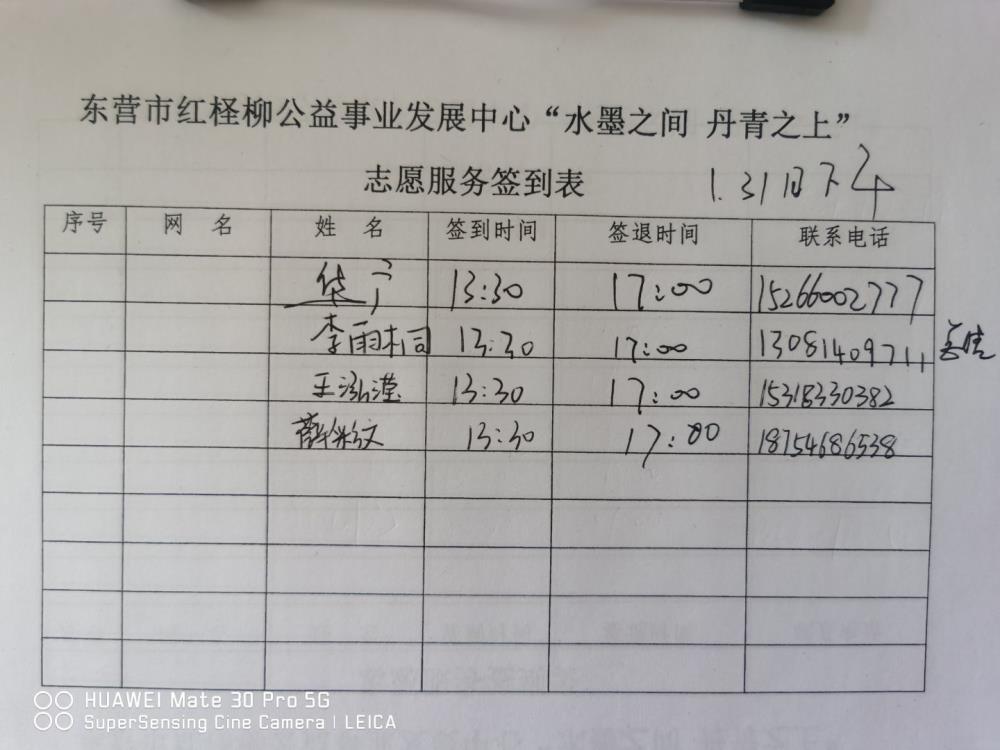 东营市红柽柳公益事业发展中心“水墨之间 丹青之上”
志愿服务签到表 1.31日下午
序号 网 名 姓 名 签到时间 签退时间 联系电话
13:30 17:00 15266002777
李雨桐 13:30 17:00 13081409711
王泓滢 13:30 17:00 15318330382
13:30 17:00 18754686538
HUAWEI Mate 30 Pro 5G
SuperSensing Cine Camera | LEICA